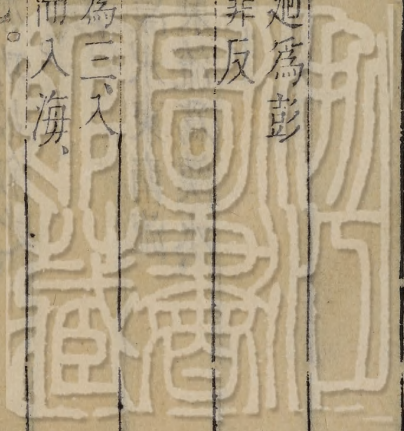 廻爲彭
罪反
為三、入
而入海、
浙江
圖書
館藏